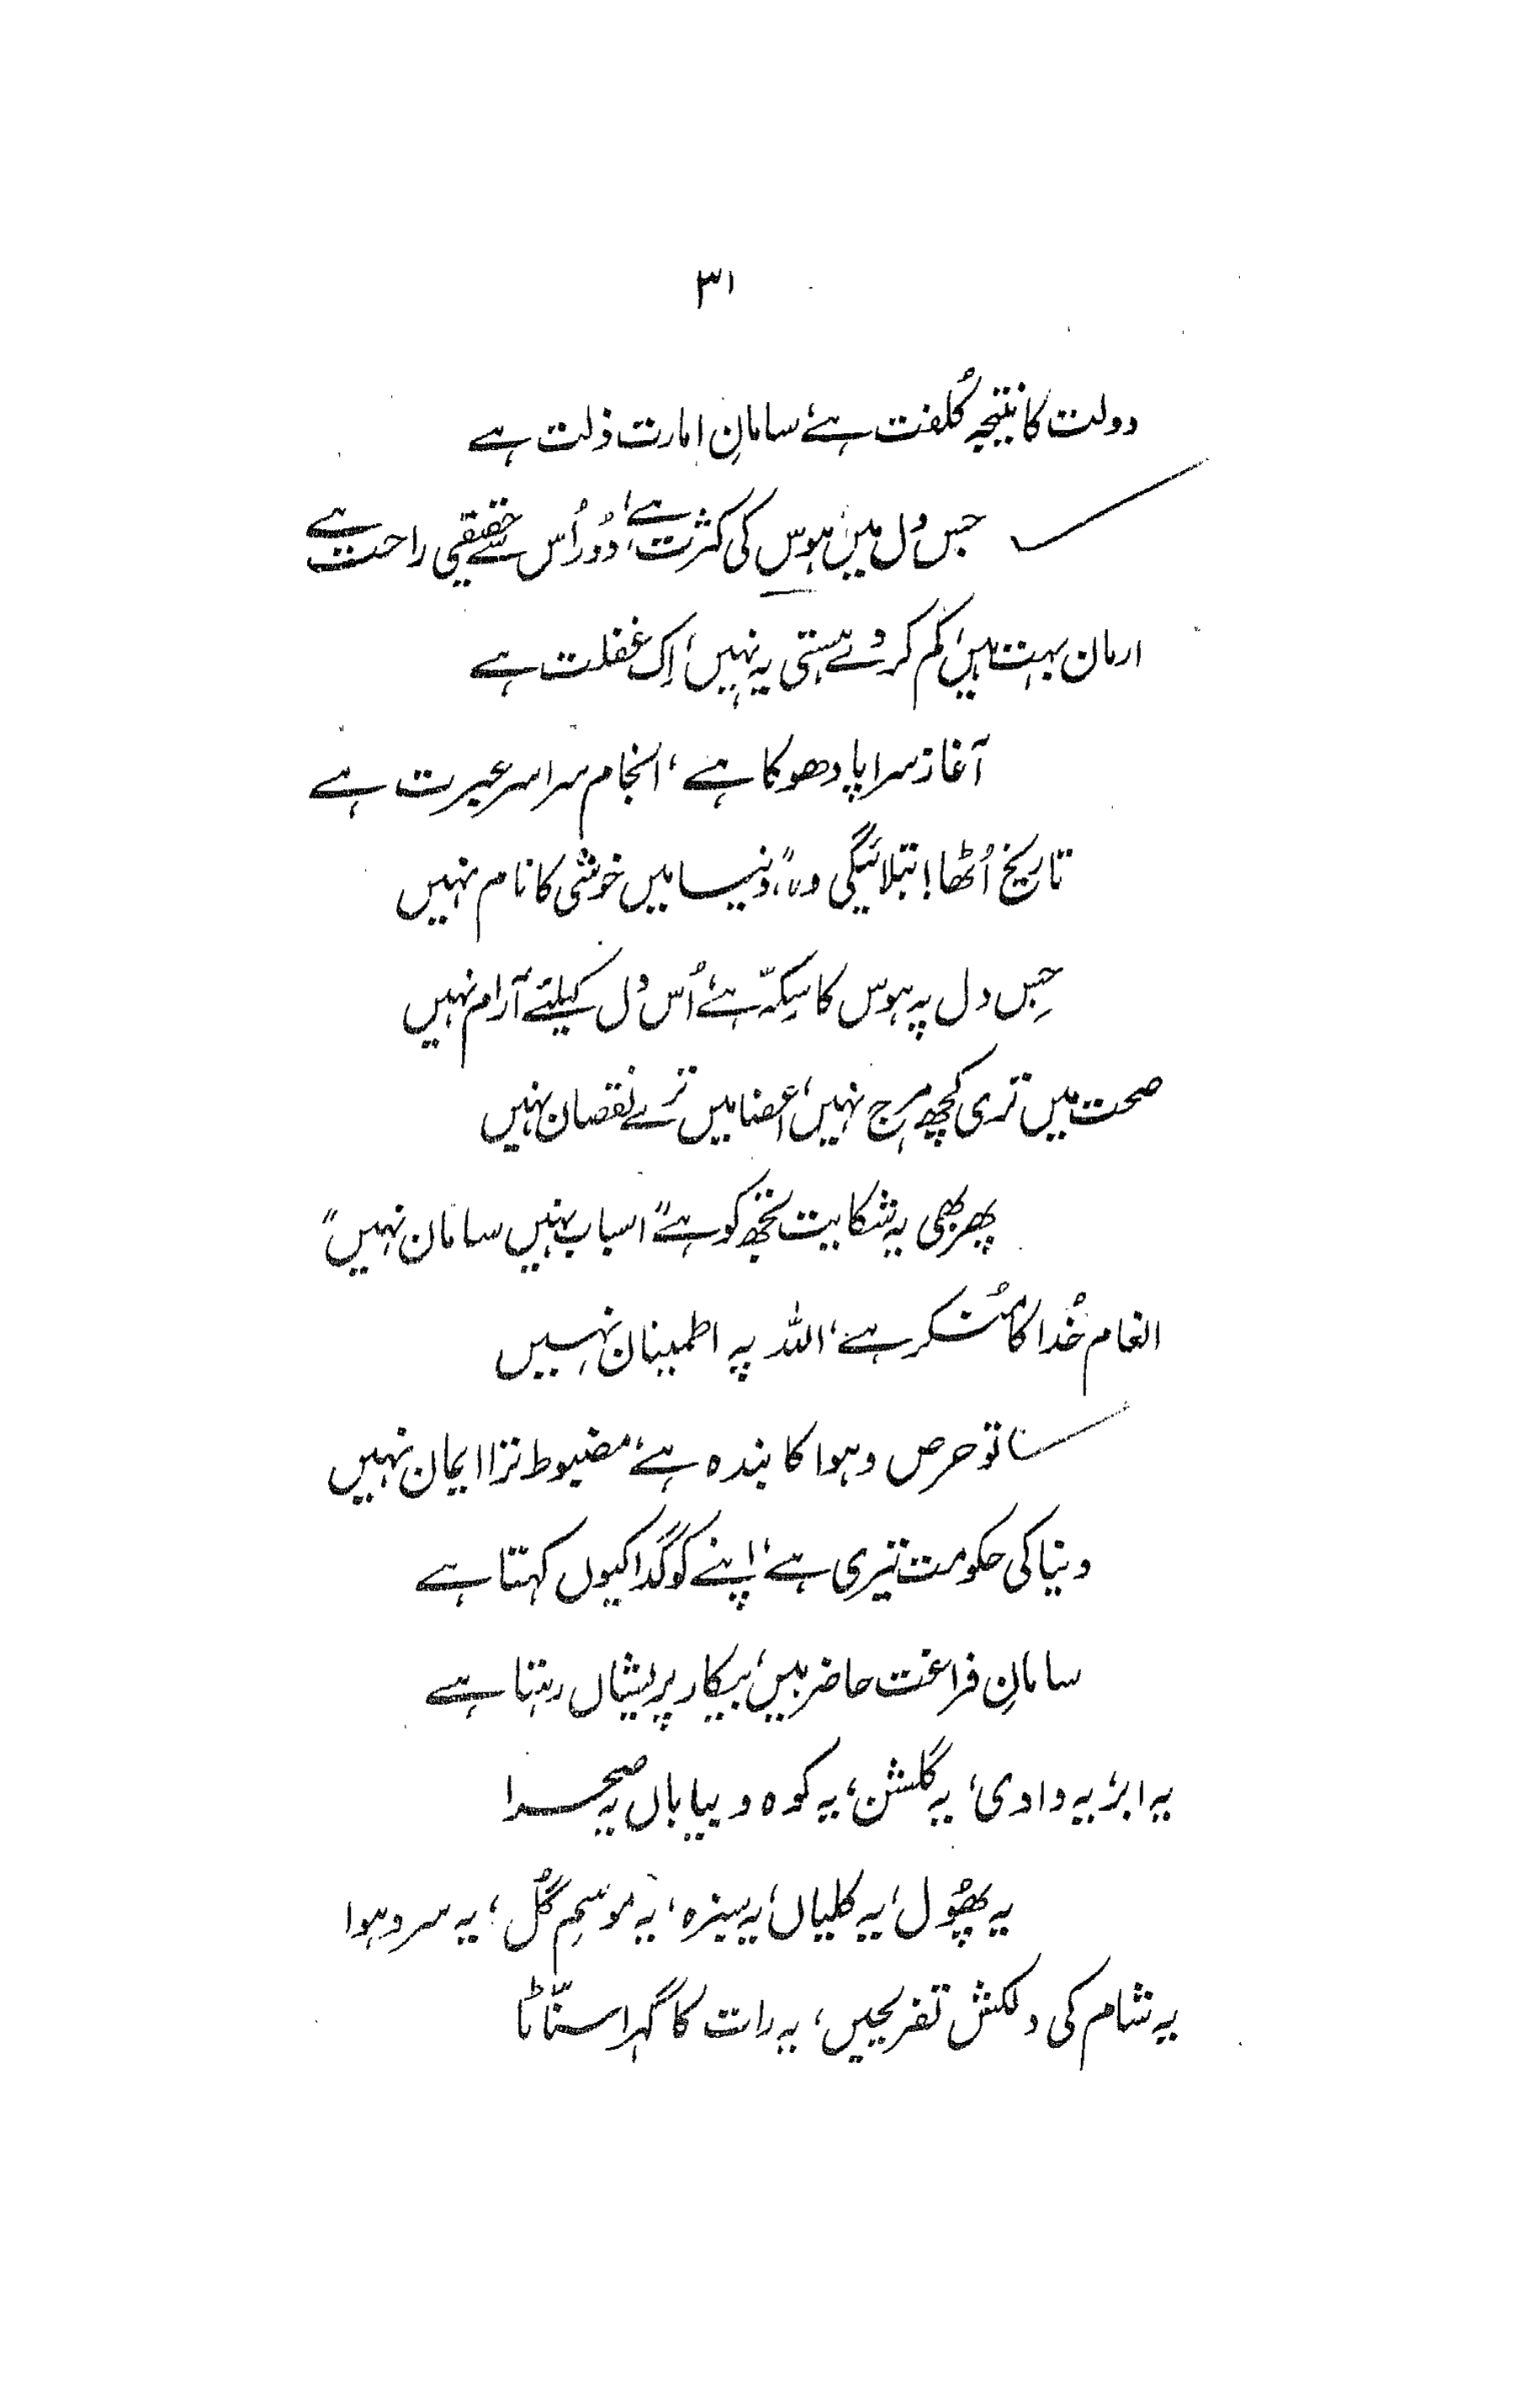 ۳۱
دولت کا نتیجہ کُلفت ہے، سامانِ امارت ذلت ہے
جس دل میں ہوس کی کثرت ہے، دُور اُس سے حقیقی راحت ہے
ارمان بہت ہیں، کم کر دے، ہستی یہ نہیں، اِک غفلت ہے
آغاز سراپا دھوکا ہے، انجام سراسر عبرت ہے
تاریخ اُٹھا! بتلائیگی وہ "دنیا میں خوشی کا نام نہیں
جِس دل پہ ہوس کا سِکّہ ہے، اُس دل کیلئے آرام نہیں
صحت میں تری کچھ ہرج نہیں، اعضا میں ترے نقصان نہیں
پھر بھی یہ شکایت تجھ کو ہے "اسباب نہیں سامان نہیں"
انعام خُدا کا مُنکر ہے، اللہ پہ اطمینان نہیں
تو حرص و ہوا کا بندہ ہے، مضبوط ترا ایمان نہیں
دنیا کی حکومت تیری ہے، اپنے کو گدا کیوں کہتا ہے
سامانِ فراغت حاضر ہیں، بیکار پریشاں رہتا ہے
یہ ابر، یہ وادی، یہ گلشن، یہ کوہ و بیاباں یہ صحرا
یہ پھُول، یہ کلیاں، یہ سبزہ، یہ موسمِ گُل، یہ سرد ہوا
یہ شام کی دلکش تفریحیں، یہ رات کا گہرا سنّاٹا